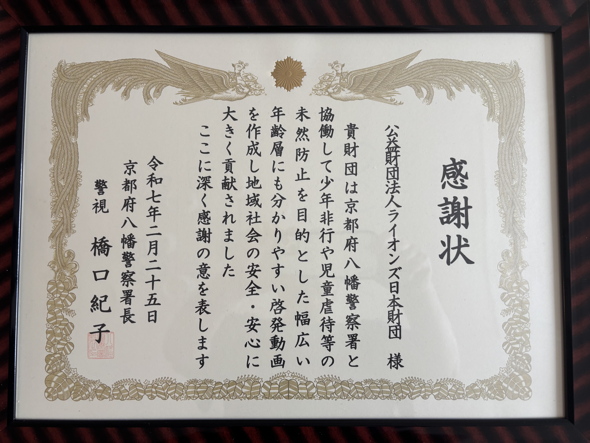 感謝状
公益財団法人ライオンズ日本財団 様
貴財団は京都府八幡警察署と
協働して少年非行や児童虐待等の
未然防止を目的とした幅広い
年齢層にも分かりやすい啓発動画
を作成し地域社会の安全・安心に
大きく貢献されました
ここに深く感謝の意を表します
令和七年二月二十五日
京都府八幡警察署長
警視 橋口紀子